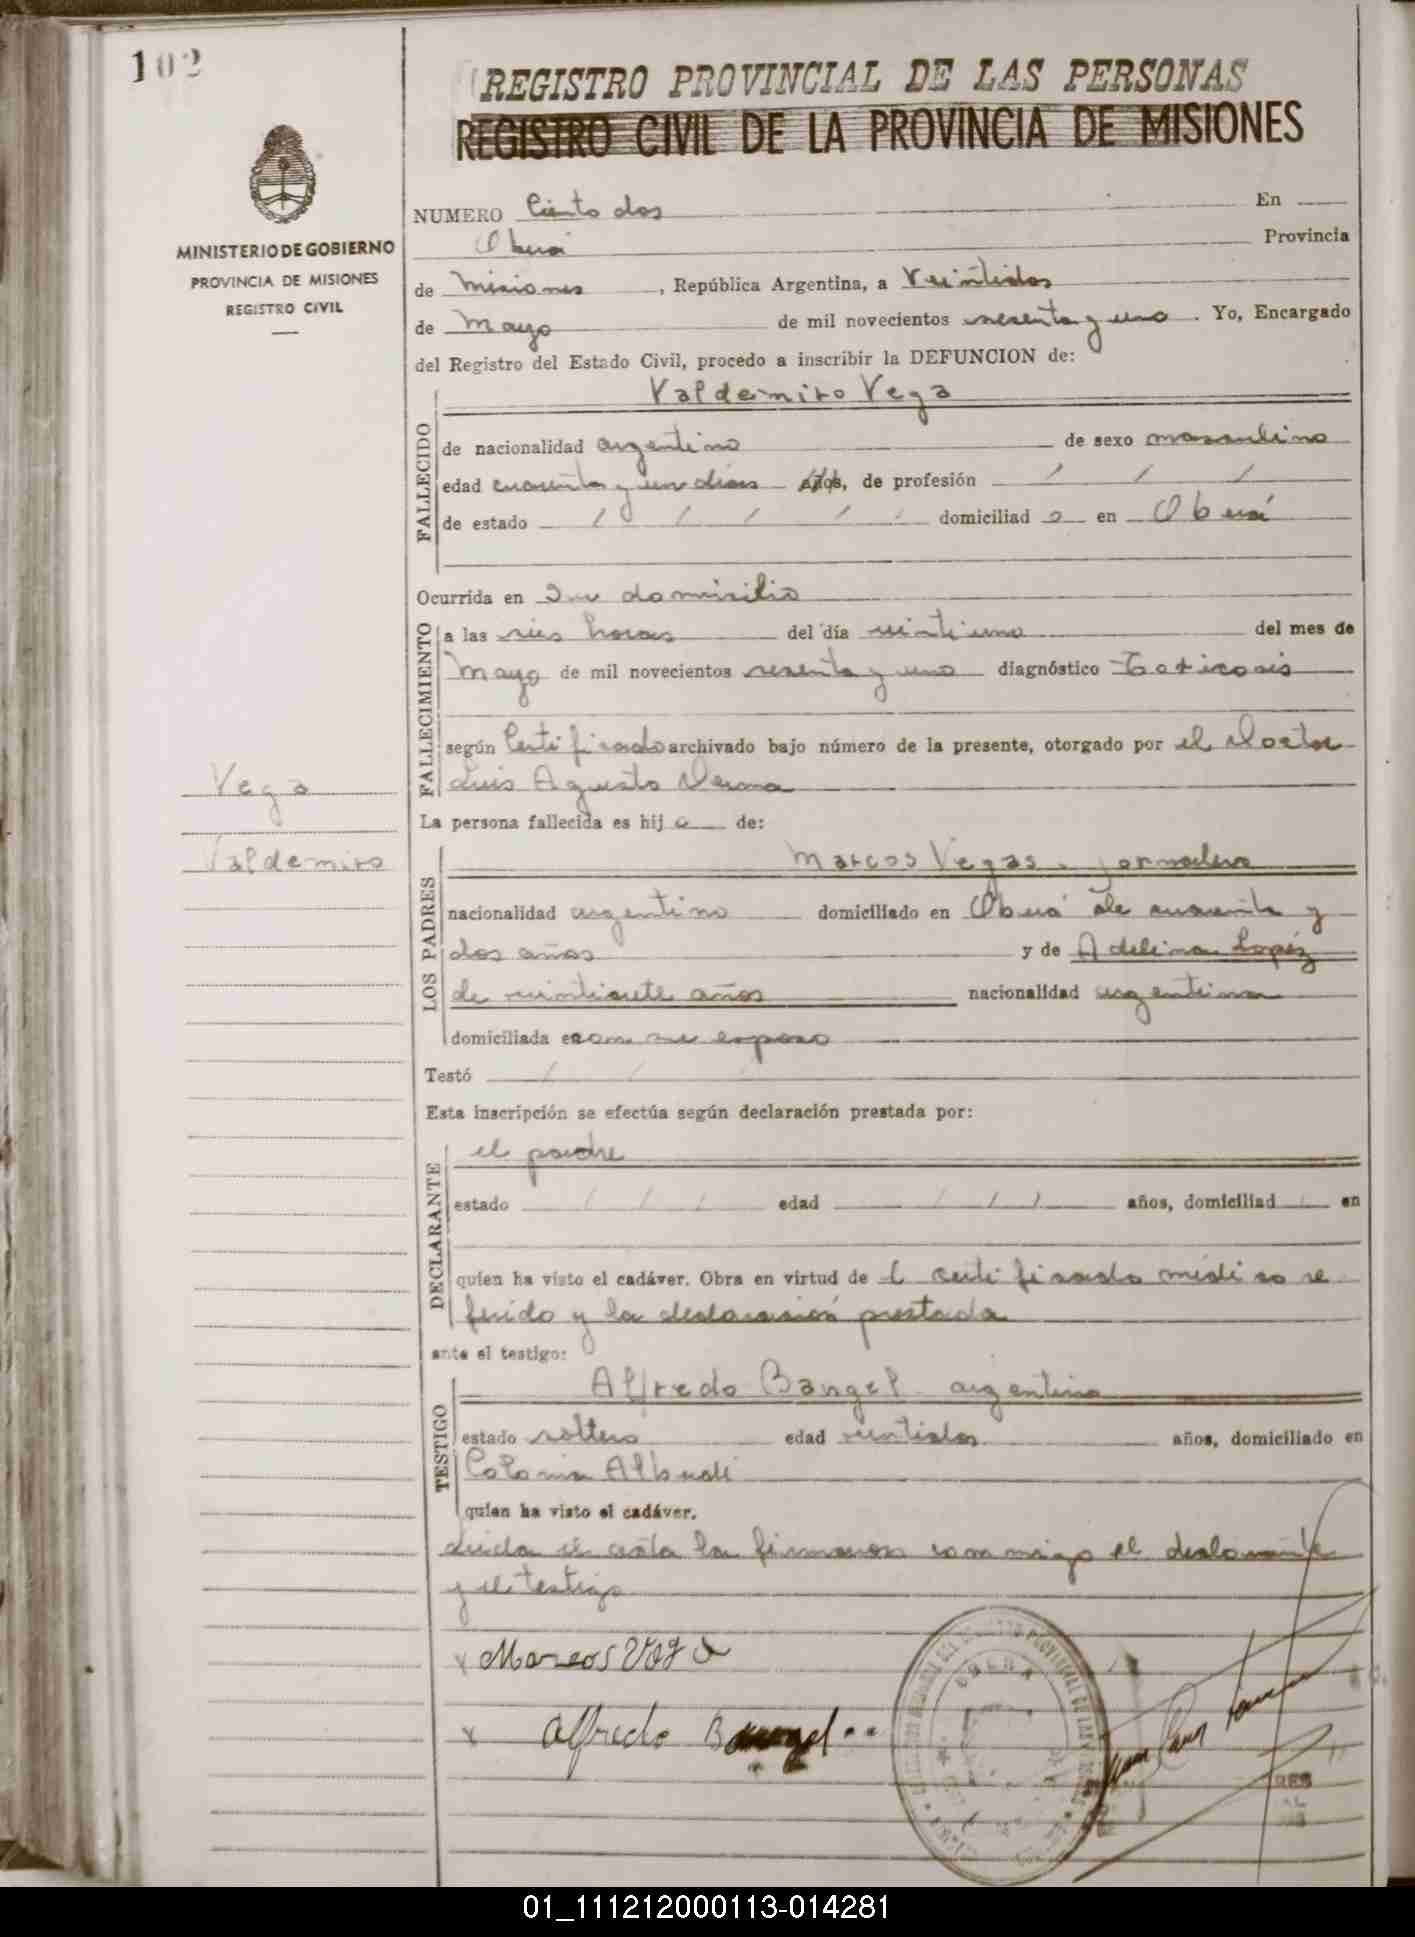 102
REGISTRO PROVINCIAL DE LAS PERSONAS
REGISTRO CIVIL DE LA PROVINCIA DE MISIONES
MINISTERIO DE GOBIERNO
PROVINCIA DE MISIONES
REGISTRO CIVIL
NUMERO Ciento dos En
Oberá Provincia
de Misiones, República Argentina, a Veintidos
de Mayo de mil novecientos sesenta y uno. Yo, Encargado
del Registro del Estado Civil, procedo a inscribir la DEFUNCION de:
Valdemiro Vega
FALLECIDO
de nacionalidad argentino de sexo masculino
edad cuarenta y un dias años, de profesión / / /
de estado / / / / / domiciliad o en Oberá
Ocurrida en Su domicilio
FALLECIMIENTO
a las seis horas del día veintiuno del mes de
Mayo de mil novecientos sesenta y uno diagnóstico Toxicosis
según Certificado archivado bajo número de la presente, otorgado por el Doctor
Luis Agusto
Vega
Valdemiro
La persona fallecida es hij o de:
LOS PADRES
Marcos Vegas. jornalero
nacionalidad argentino domiciliado en Oberá de cuarenta y
dos años y de Adelina Lopéz
de veintisiete años nacionalidad argentina
domiciliada en con su esposo
Testó / /
Esta inscripción se efectúa según declaración prestada por:
DECLARANTE
el padre
estado / / / edad / / / años, domiciliad / en
quien ha visto el cadáver. Obra en virtud de l certificado médico re
ferido y la declaración prestada
ante el testigo:
TESTIGO
Alfredo Bangel argentino
estado soltero edad veintidos años, domiciliado en
Colonia Alberdi
quien ha visto el cadáver.
Leida el acta la firmaron conmigo el declarante
y el testigo
x Marcos Vega
x Alfredo Bangel
OBERA
01_111212000113-014281